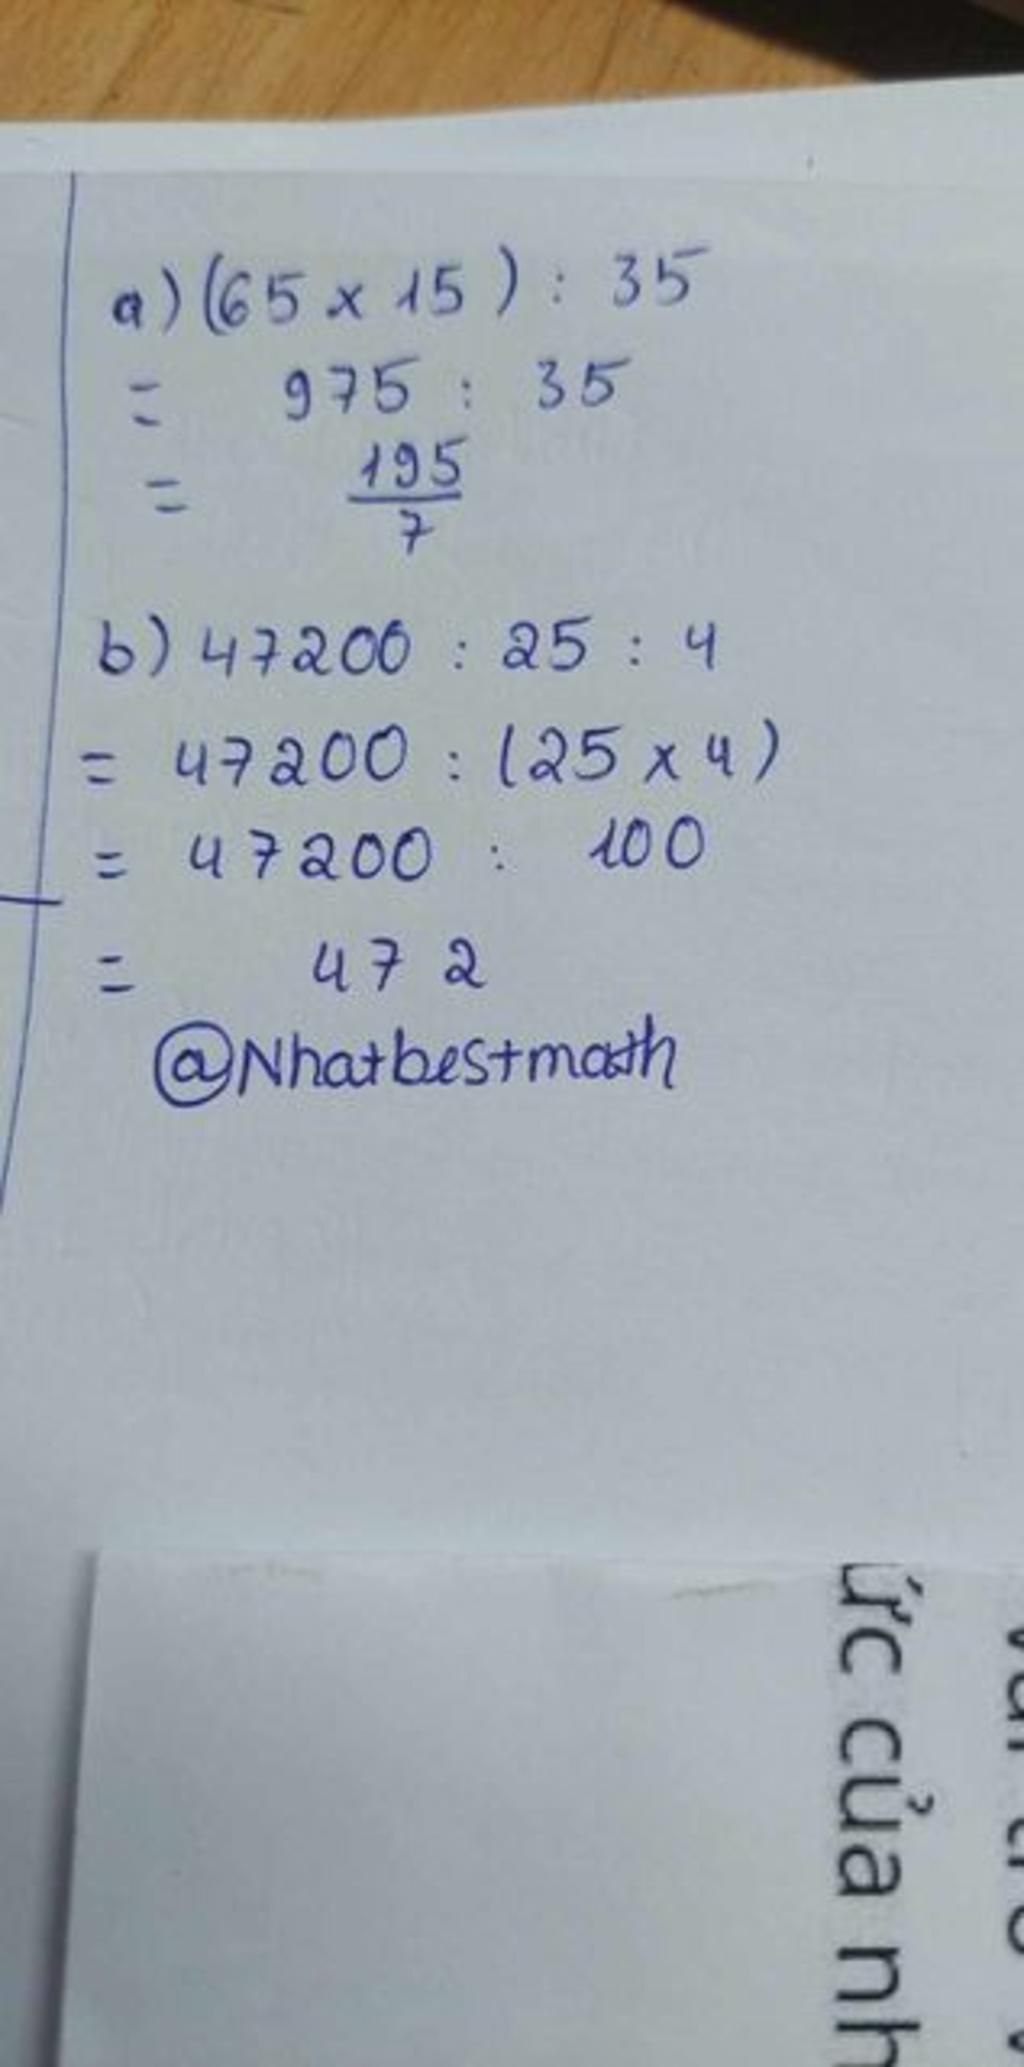 a) (65 x 15) : 35
= 975 : 35
= 195/7
b) 47200 : 25 : 4
= 47200 : (25 x 4)
= 47200 : 100
= 472
@Nhatbestmath
ức của nh